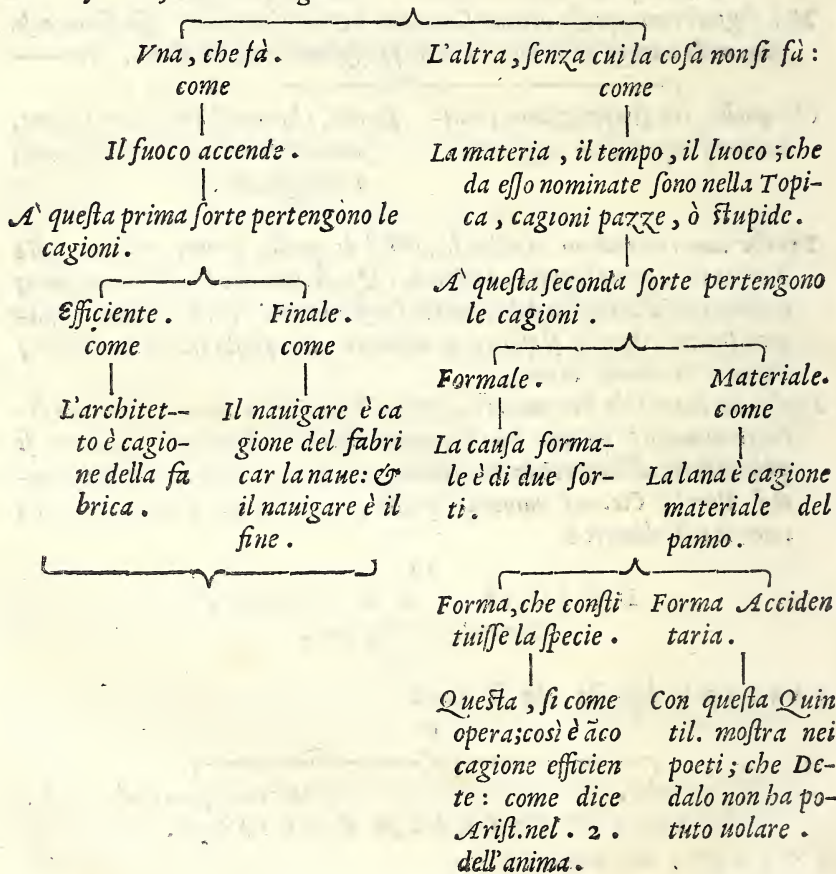 Vna, che fà.
come
Il fuoco accende.
A` questa prima sorte pertengono le
cagioni.
Efficiente.
come
L'architet--
to è cagio-
ne della fa
brica.
Finale.
come
Il nauigare è ca
gione del fabri
car la naue: &
il nauigare è il
fine.
L'altra, senza cui la cosa non si fà:
come
La materia, il tempo, il luoco; che
da esso nominate sono nella Topi-
ca, cagioni pazze, ò stupide.
A` questa seconda sorte pertengono
le cagioni.
Formale.
La causa forma-
le è di due sor-
ti.
Materiale.
come
La lana è cagione
materiale del
panno.
Forma, che consti
tuisse la specie.
Questa, si come
opera; così è āco
cagione efficien
te: come dice
Arist. nel. 2.
dell'anima.
Forma Acciden
taria.
Con questa Quin
til. mostra nei
poeti; che De-
dalo non ha po-
tuto uolare.